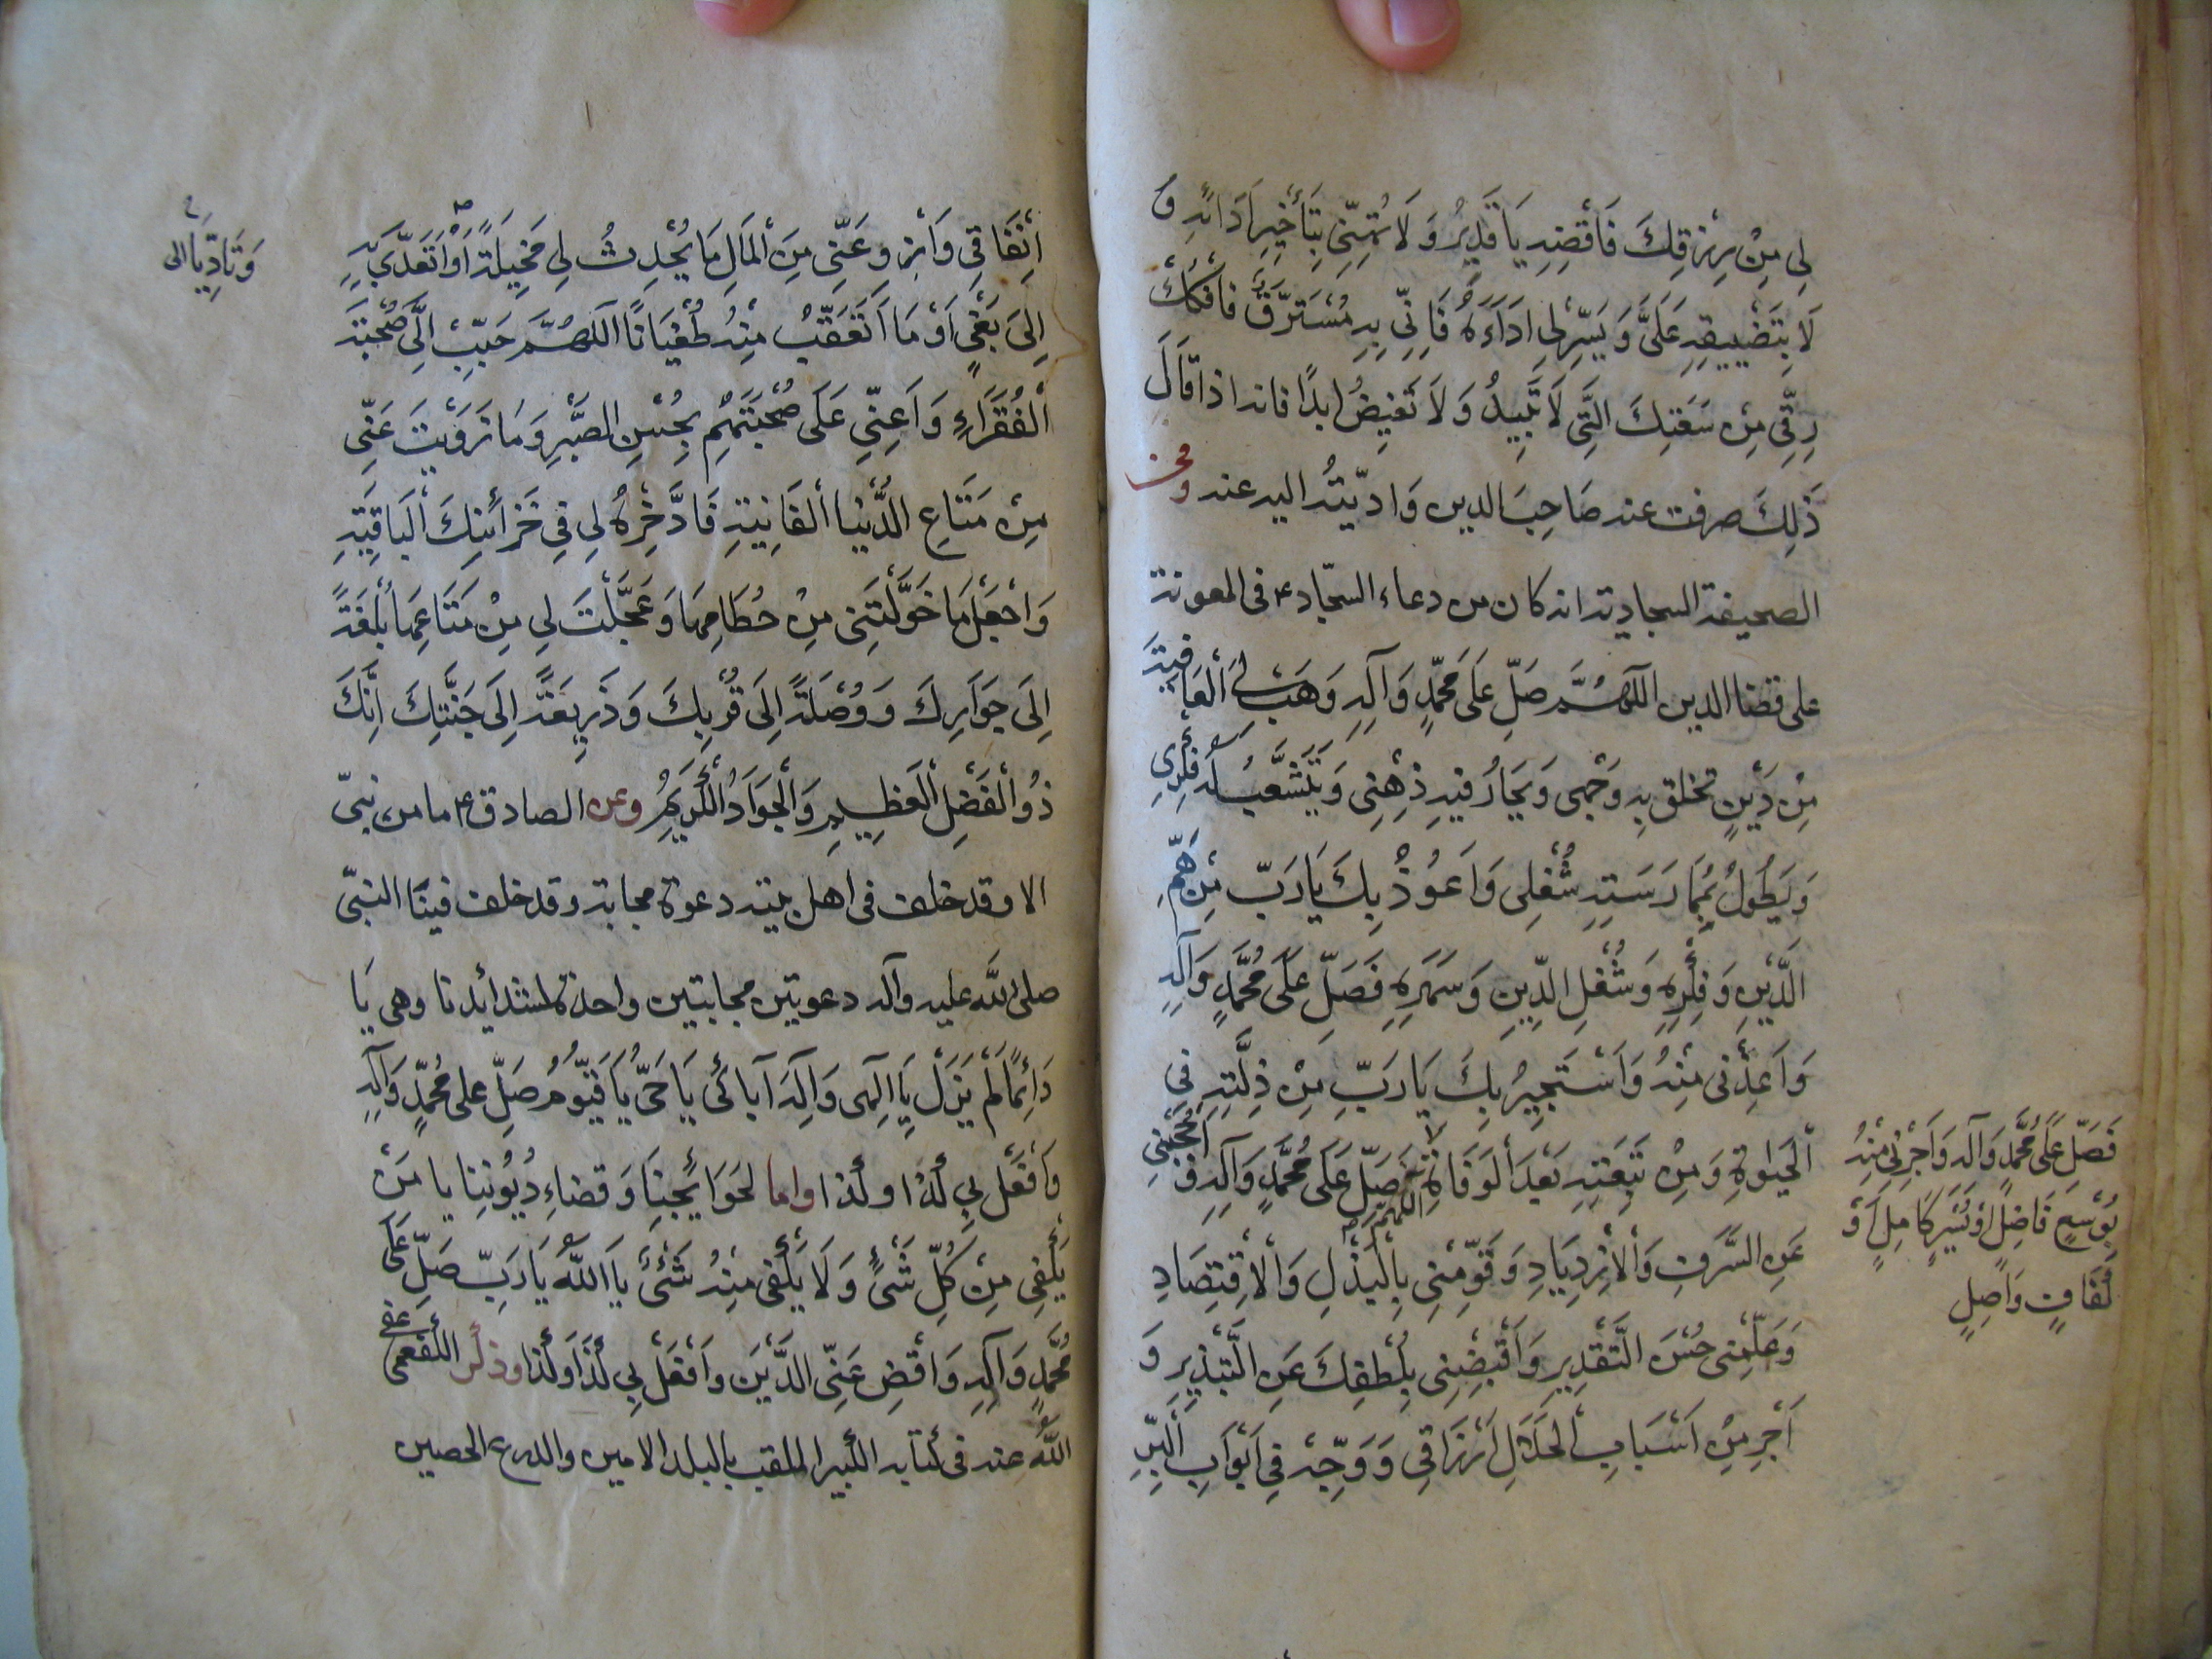 لِي مِنْ رِزْقِكَ فَاقْضِهِ يَا قَدِيرُ وَ لَا تُهِنِّي بِتَأْخِيرِ اَدَائِهِ وَ
لَا بِتَضْيِيقِهِ عَلَىَّ وَ يَسِّرْ لِي اَدَاءَهُ فَاِنِّي بِهِ مُسْتَرَقٌّ فَافْكُكْ
رِقِّي مِنْ سَعَتِكَ الَّتِي لَا تَبِيدُ وَ لَا تَغِيضُ ابدًا فانه اذا قَالَ
ذَلِكَ صرفت عنه صَاحِبَ الدين وَ ادّيتُه اليه عنه وفى
الصحيفة السجادية انه كان من دعاء السجّاد ع فى المعونة
على قضا الدين اللَّهُمَّ صَلِّ عَلَى مُحَمَّدٍ وَآلِهِ وَهَبْ لِيَ الْعَافِيَةَ
مِنْ دَيْنٍ تخلق بِهِ وَجْهِى وَيَحَارُ فِيهِ ذِهْنِى وَيَتَشَعَّبُ لَهُ فِكْرِى
وَيَطُولُ بِمُمَارَسَتِهِ شُغْلِى وَاَعُوذُ بِكَ يَا رَبِّ مِنْ هَمِّ
الدَّيْنِ وَفِكْرِهِ وَشُغْلِ الدَّيْنِ وَسَهَرِهِ فَصَلِّ عَلَى مُحَمَّدٍ وَآلِهِ
وَاَعِذْنى مِنْهُ وَاَسْتَجِيرُ بِكَ يَا رَبِّ مِنْ ذِلَّتِهِ فِي
الْحَيٰوةِ وَمِنْ تَبِعَتِهِ بَعْدَ الْوَفَاةِ اللهم صَلِّ عَلَى مُحَمَّدٍ وَآلِهِ وَ احْجُبْنِي
عَنِ السَّرَفِ وَالْاِزْدِيَادِ وَقَوِّمْنِى بِالْبَذْلِ وَالْاِقْتِصَادِ
وَعَلِّمْنِى حُسْنَ التَّقْدِيرِ وَاقْبِضْنِى بِلُطْفِكَ عَنِ التَّبْذِيرِ وَ
اَجْرِ مِنْ اَسْبَابِ الْحَلَالِ اَرْزَاقِي وَوَجِّهْ فِي اَبْوَابِ الْبِرِّ
فَصَلِّ عَلَى مُحَمَّدٍ وَآلِهِ وَاَجِرْنِي مِنْهُ
بِوُسْعٍ فَاضِلٍ اَوْ يُسْرٍ كَامِلٍ اَوْ
كَفَافٍ وَاصِلٍ
اِنْفَاقِي وَازْوِ عَنِّي مِنَ الْمَالِ مَا يُحْدِثُ لِي مَخِيلَةً اَوْ اَتَعَدّى بِهِ
اِلَى بَغْيٍ اَوْ مَا اَتَعَقَّبُ مِنْهُ طُغْيَانًا اللَّهُمَّ حَبِّبْ اِلَىَّ صُحْبَةَ
الْفُقَرَاءِ وَاَعِنِّي عَلَى صُحْبَتِهِمْ بِحُسْنِ الصَّبْرِ وَمَا زَوَيْتَ عَنِّى
مِنْ مَتَاعِ الدُّنْيَا الْفَانِيَةِ فَادَّخِرْهُ لِي فِي خَزَائِنِكَ الْبَاقِيَةِ
وَاجْعَلْ مَا خَوَّلْتَنِى مِنْ حُطَامِهَا وَعَجَّلْتَ لِي مِنْ مَتَاعِهَا بُلْغَةً
اِلَى جِوَارِكَ وَوُصْلَةً اِلَى قُرْبِكَ وَذَرِيعَةً اِلَى جَنَّتِكَ اِنَّكَ
ذُو الْفَضْلِ الْعَظِيمِ وَالْجَوَادُ الْكَرِيمُ وعن الصادق ع ما من نبىّ
الا وقد خلف فى اهل بيته دعوة مجابة وقد خلف فينَا النبىّ
صلى الله عليه وآله دعوتين مجابتين واحدة لشدائدنا وهى يَا
دَائِمًا لَمْ يَزَلْ يَا اِلَهِى وَاِلَهَ آبائى يَا حَىُّ يَا قَيُّومُ صَلِّ على مُحَمَّدٍ وَآلِهِ
وَافْعَلْ بِي كَذَا وكَذا واما لحَوَايِجِنَا وَقضاءِ دُيُونِنا يا مَنْ
يَكْفِى مِنْ كُلِّ شَىْءٍ وَلَا يَكْفى مِنْهُ شَىْءٌ يا اللهُ يَا رَبِّ صَلِّ عَلَى
مُحَمَّدٍ وَآلِهِ وَاقْضِ عَنِّى الدَّيْنَ وَافْعَلْ بِي كَذَا وَكَذا وذكر الكفعمى عفى
الله عنه فى كتابه الكبير الملقب بالبلد الامين والدرع الحصين
وَتَادِّيًا الى